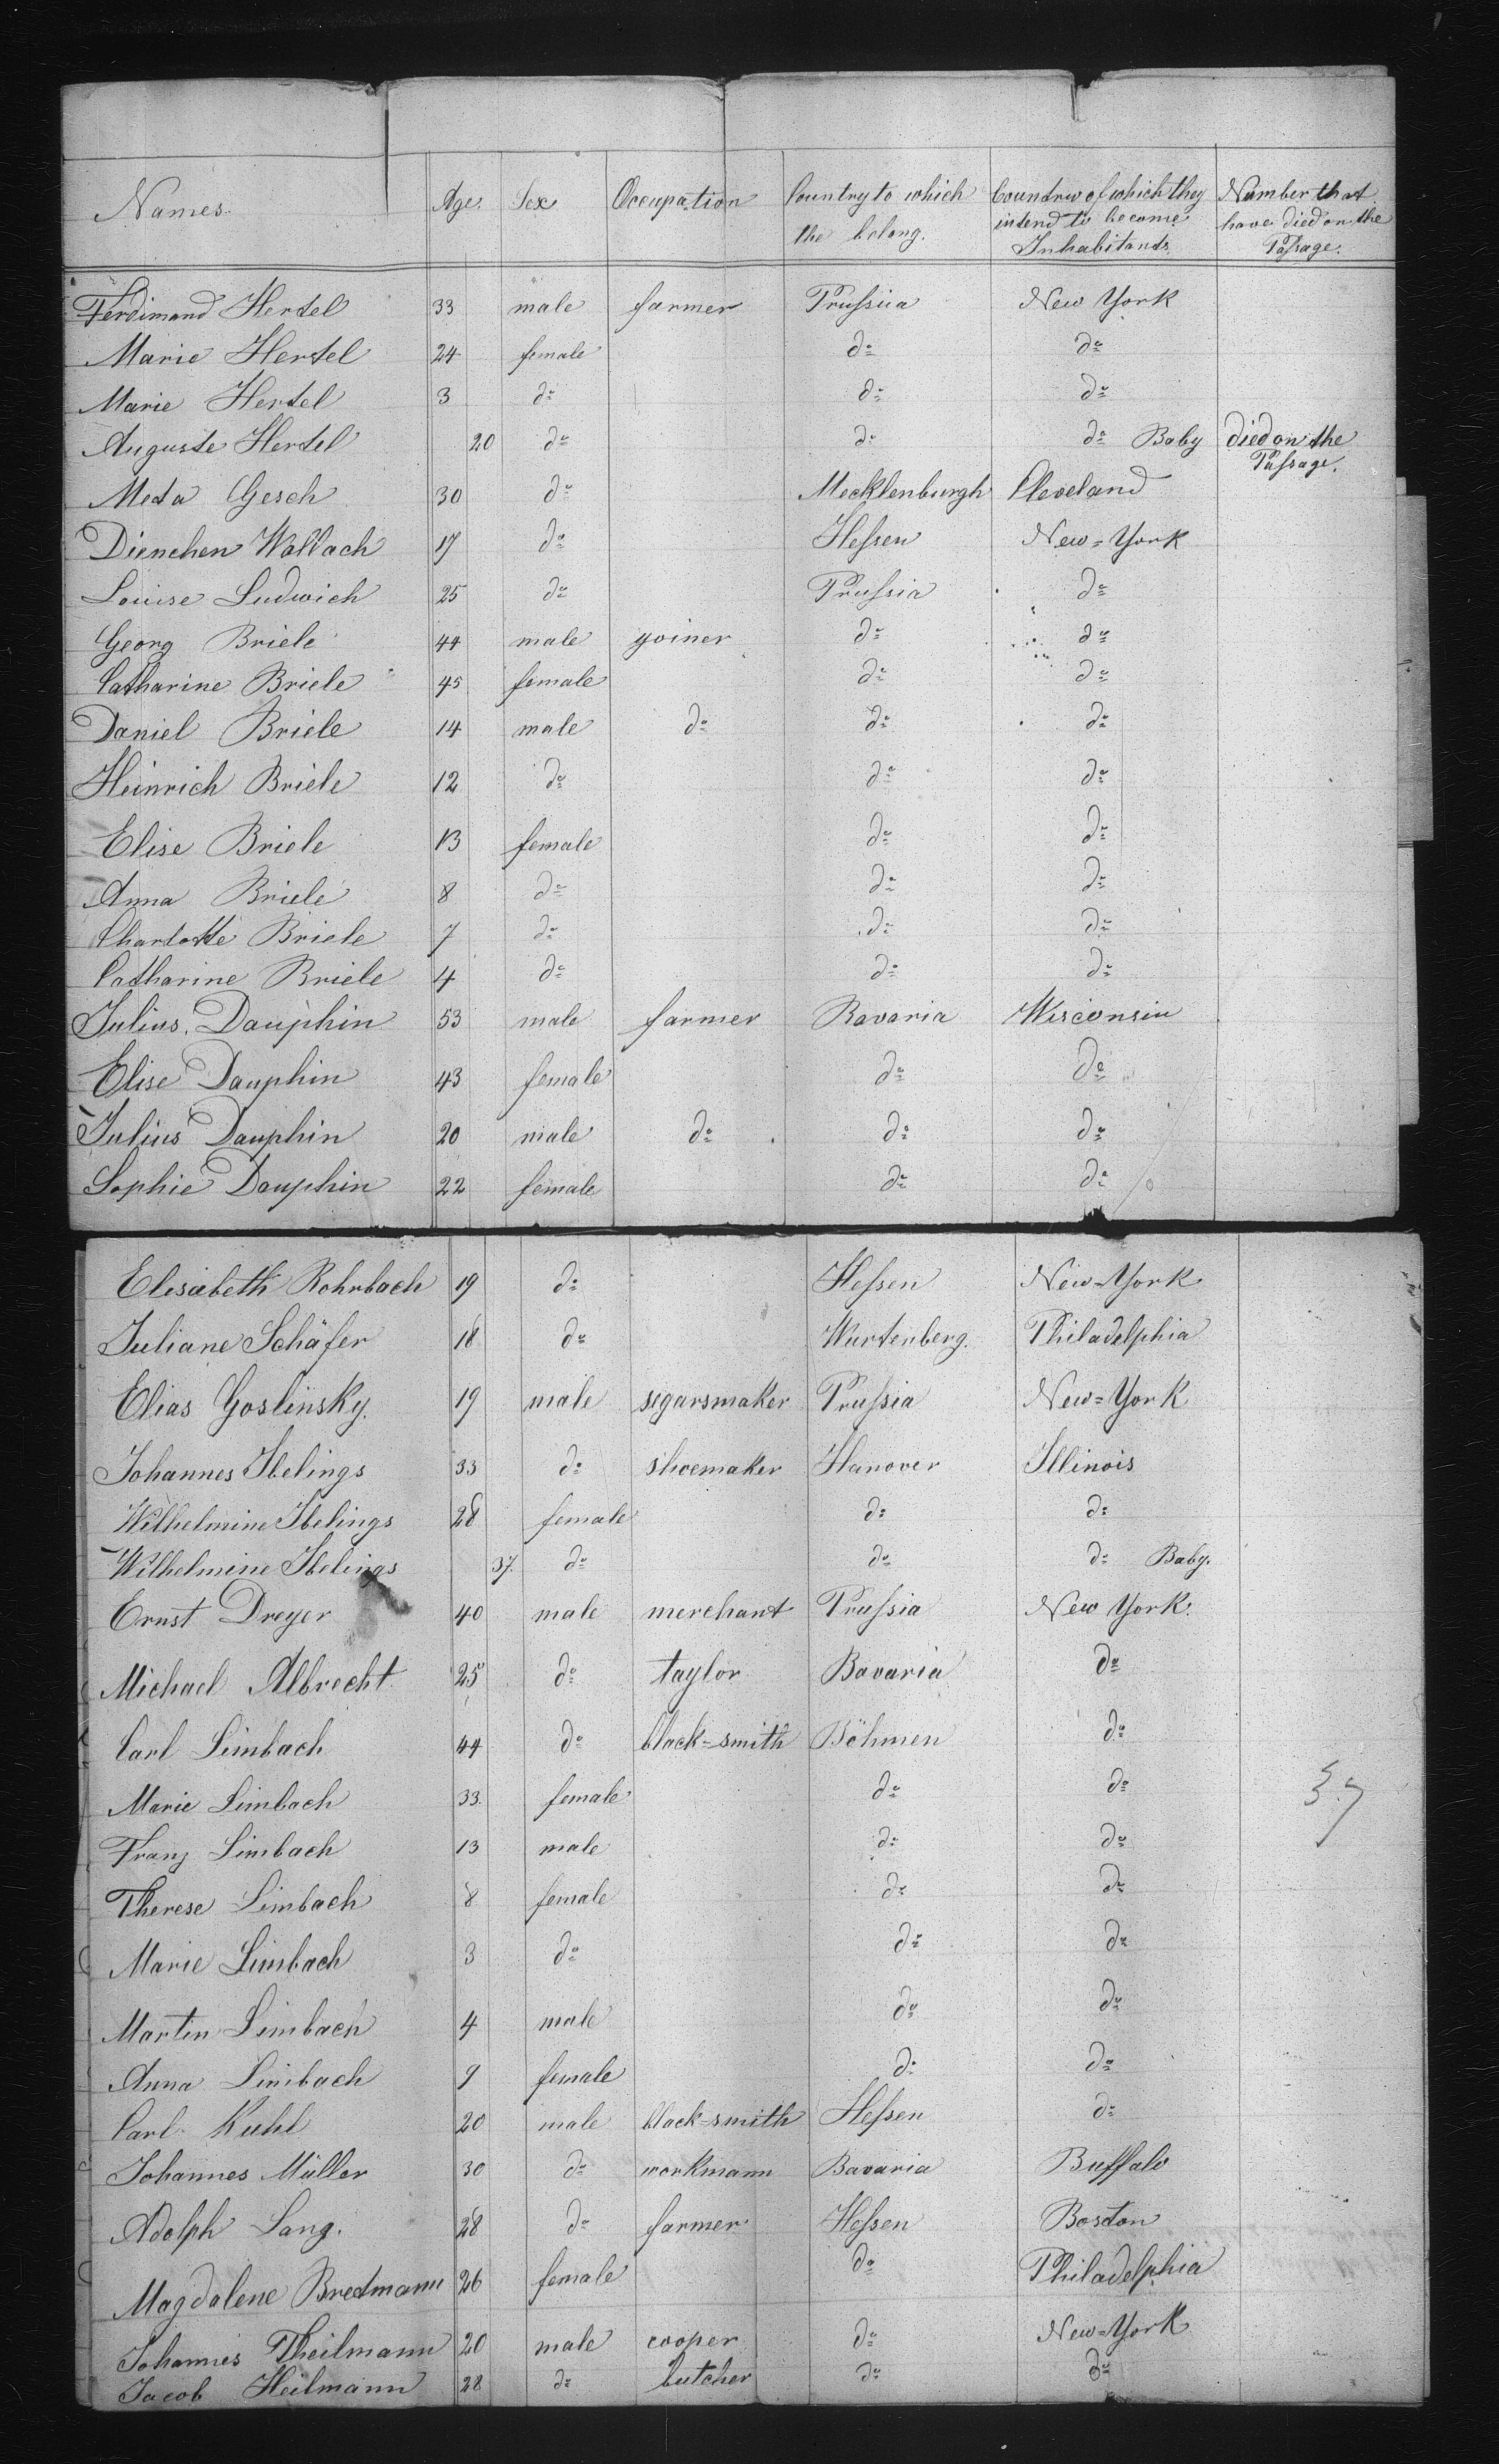 Names. Age. Sex Occupation Country to which the belong. Countrw of which they intend to become Inhabitants. Number that have died on the Passage.
Ferdimand Hertel 33 male farmer Prussia New York
Marie Hertel 24 female do do
Marie Hertel 3 do do do
Auguste Hertel 20 do do do Baby died on the Passage.
Meta Gesch 30 do Mecklenburgh Cleveland
Dienchen Wallach 17 do Hessen New=York
Louise Ludwich 25 do Prussia do
Georg Briele 44 male yoiner do do
Catharine Briele 45 female do do
Daniel Briele 14 male do do do
Heinrich Briele 12 do do do
Elise Briele 13 female do do
Anna Briele 8 do do do
Charlotte Briele 7 do do do
Catharine Briele 4 do do do
Julius Dauphin 53 male farmer Bavaria Wisconsin
Elise Dauphin 43 female do do
Julius Dauphin 20 male do do do
Sophie Dauphin 22 female do do
Elisabeth Rohrbach 19 do Hessen New=York
Juliane Schäfer 18 do Wurtenberg. Philadelphia
Elias Goslinsky. 19 male segarsmaker Prussia New=York
Johannes Ibelings 33 do shoemaker Hanover Illinois
Wilhelmine Ibelings 28 female do do
Wilhelmine Ibelings 37. do do do Baby.
Ernst Dreyer 40 male merchant Prussia New York.
Michael Albrecht 25 do taylor Bavaria do
Carl Limbach 44 do black=smith Böhmen do
Marie Limbach 33. female do do
Franz Limbach 13 male do do
Therese Limbach 8 female do do
Marie Limbach 3 do do do
Martin Limbach 4 male do do
Anna Limbach 9 female do do
Carl Kuhl 20 male black=smith Hessen do
Johannes Müller 30 do workmann Bavaria Buffalo
Adolph Lang. 28 do farmer Hessen Boston
Magdalene Bredmann 26 female do Philadelphia
Johannes Theilmann 20 male cooper do New=York
Jacob Heilmann 28 do butcher do do